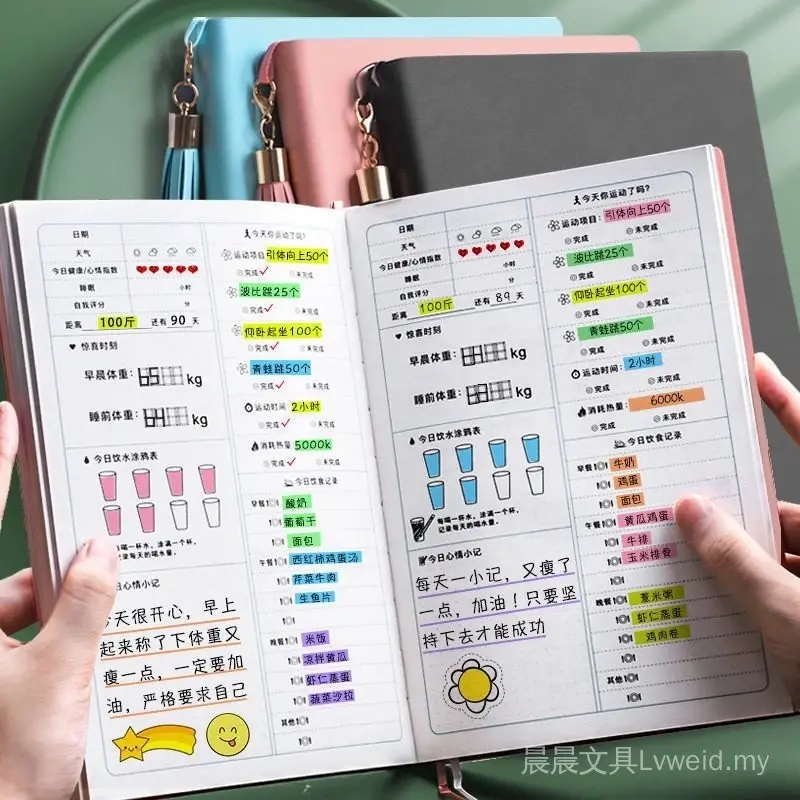 日期
天气
今日健康/心情指数
睡眠 小时
自我评分 分
距离 100斤 还有 90 天
惊喜时刻
早晨体重: kg
睡前体重: kg
今日饮水涂鸦表
喝一杯水,涂满一个杯
录每天的喝水量。
日心情小记
天很开心,早上
起来称了下体重又
瘦一点,一定要加
油,严格要求自己
今天你运动了吗?
运动项目 引体向上50个
完成 未完成
波比跳25个
完成 未完成
仰卧起坐100个
完成 未完成
青蛙跳50个
完成 未完成
运动时间: 2小时
完成 未完成
消耗热量 5000k
完成 未完成
今日饮食记录
早餐 酸奶
葡萄干
面包
午餐 西红柿鸡蛋汤
芹菜牛肉
生鱼片
晚餐 米饭
凉拌黄瓜
虾仁蒸蛋
蔬菜沙拉
其他
日期
天气
今日健康/心情指数
睡眠 小时
自我评分 分
距离 100斤 还有 89 天
惊喜时刻
早晨体重: kg
睡前体重: kg
今日饮水涂鸦表
每喝一杯水,涂满一个杯
记录每天的喝水量。
今日心情小记
每天一小记,又瘦了
一点,加油!只要坚
持下去才能成功
今天你运动了吗?
运动项目: 引体向上50个
完成 未完成
波比跳25个
完成 未完成
仰卧起坐100个
完成 未完成
青蛙跳50个
完成 未完成
运动时间: 2小时
完成 未完成
消耗热量: 6000k
完成 未完成
今日饮食记录
早餐 牛奶
鸡蛋
面包
午餐 黄瓜鸡蛋
牛排
玉米排骨
晚餐 薏米粥
虾仁蒸蛋
鸡肉卷
其他
晨晨文具Lvweid.my